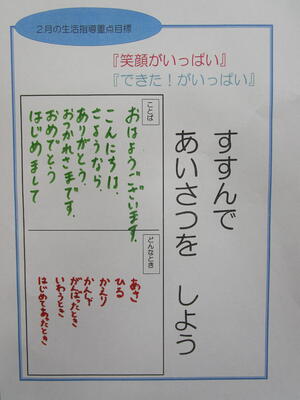 ２月の生活指導重点目標
『笑顔がいっぱい』
『できた！がいっぱい』
すすんで
あいさつを　しよう
ことば
おはようございます。
こんにちは。
さようなら。
ありがとう。
おつかれさまです。
おめでとう
はじめまして
どんなとき
あさ
ひる
かえり
かんしゃ
がんばったとき
いわうとき
はじめてあったとき